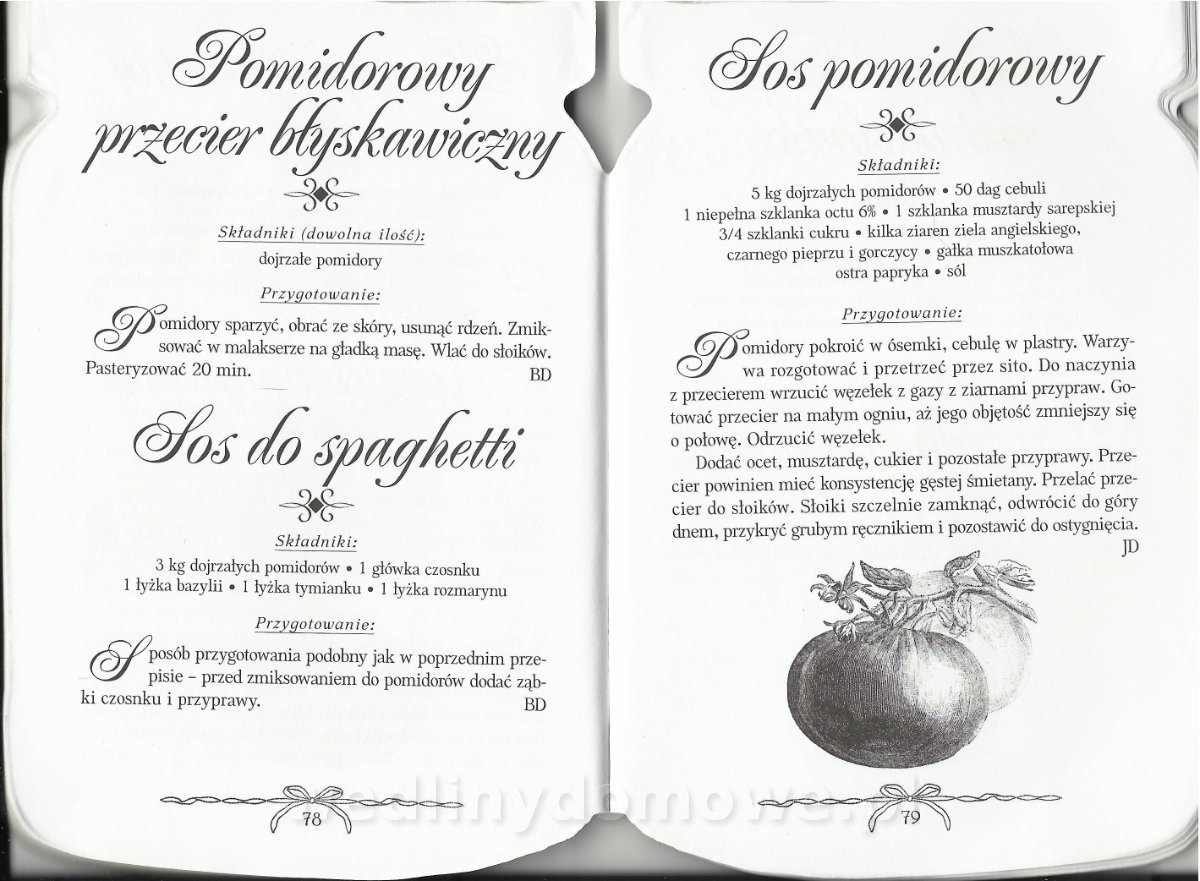 Pomidorowy
przecier błyskawiczny
Składniki (dowolna ilość):
dojrzałe pomidory
Przygotowanie:
Pomidory sparzyć, obrać ze skóry, usunąć rdzeń. Zmik-
sować w malakserze na gładką masę. Wlać do słoików.
Pasteryzować 20 min. BD
Sos do spaghetti
Składniki:
3 kg dojrzałych pomidorów • 1 główka czosnku
1 łyżka bazylii • 1 łyżka tymianku • 1 łyżka rozmarynu
Przygotowanie:
Sposób przygotowania podobny jak w poprzednim prze-
pisie – przed zmiksowaniem do pomidorów dodać ząb-
ki czosnku i przyprawy. BD
78
Sos pomidorowy
Składniki:
5 kg dojrzałych pomidorów • 50 dag cebuli
1 niepełna szklanka octu 6% • 1 szklanka musztardy sarepskiej
3/4 szklanki cukru • kilka ziaren ziela angielskiego,
czarnego pieprzu i gorczycy • gałka muszkatołowa
ostra papryka • sól
Przygotowanie:
Pomidory pokroić w ósemki, cebulę w plastry. Warzy-
wa rozgotować i przetrzeć przez sito. Do naczynia
z przecierem wrzucić węzełek z gazy z ziarnami przypraw. Go-
tować przecier na małym ogniu, aż jego objętość zmniejszy się
o połowę. Odrzucić węzełek.
Dodać ocet, musztardę, cukier i pozostałe przyprawy. Prze-
cier powinien mieć konsystencję gęstej śmietany. Przelać prze-
cier do słoików. Słoiki szczelnie zamknąć, odwrócić do góry
dnem, przykryć grubym ręcznikiem i pozostawić do ostygnięcia.
JD
79